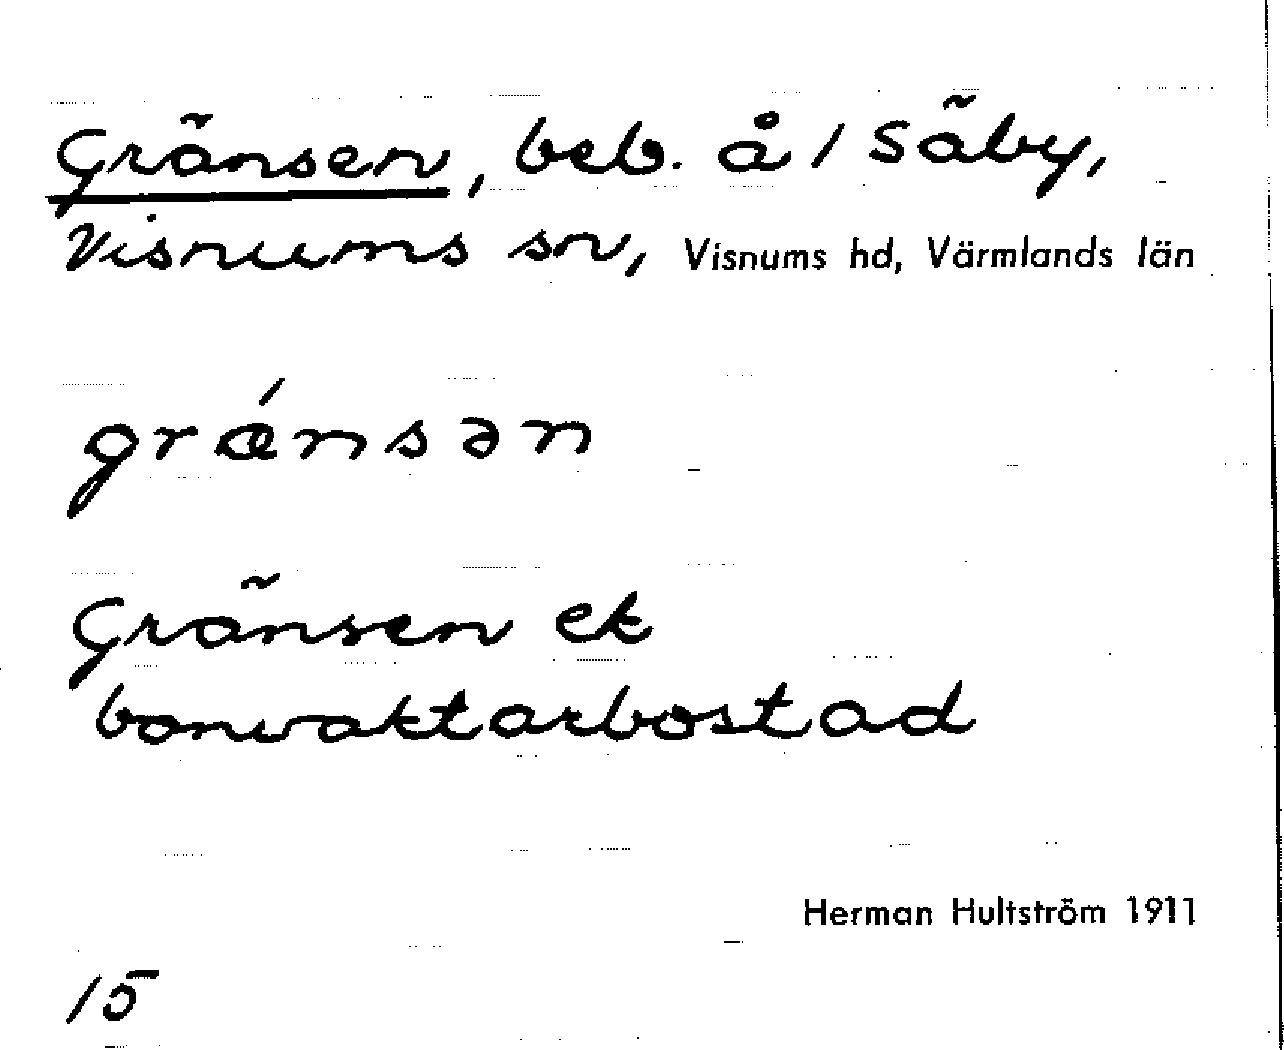 Gränsen, beb. å / Säby,
Visnums sn, Visnums hd, Värmlands län
grǽnsən
Gränsen ek
banvaktarbostad
Herman Hultström 1911
15